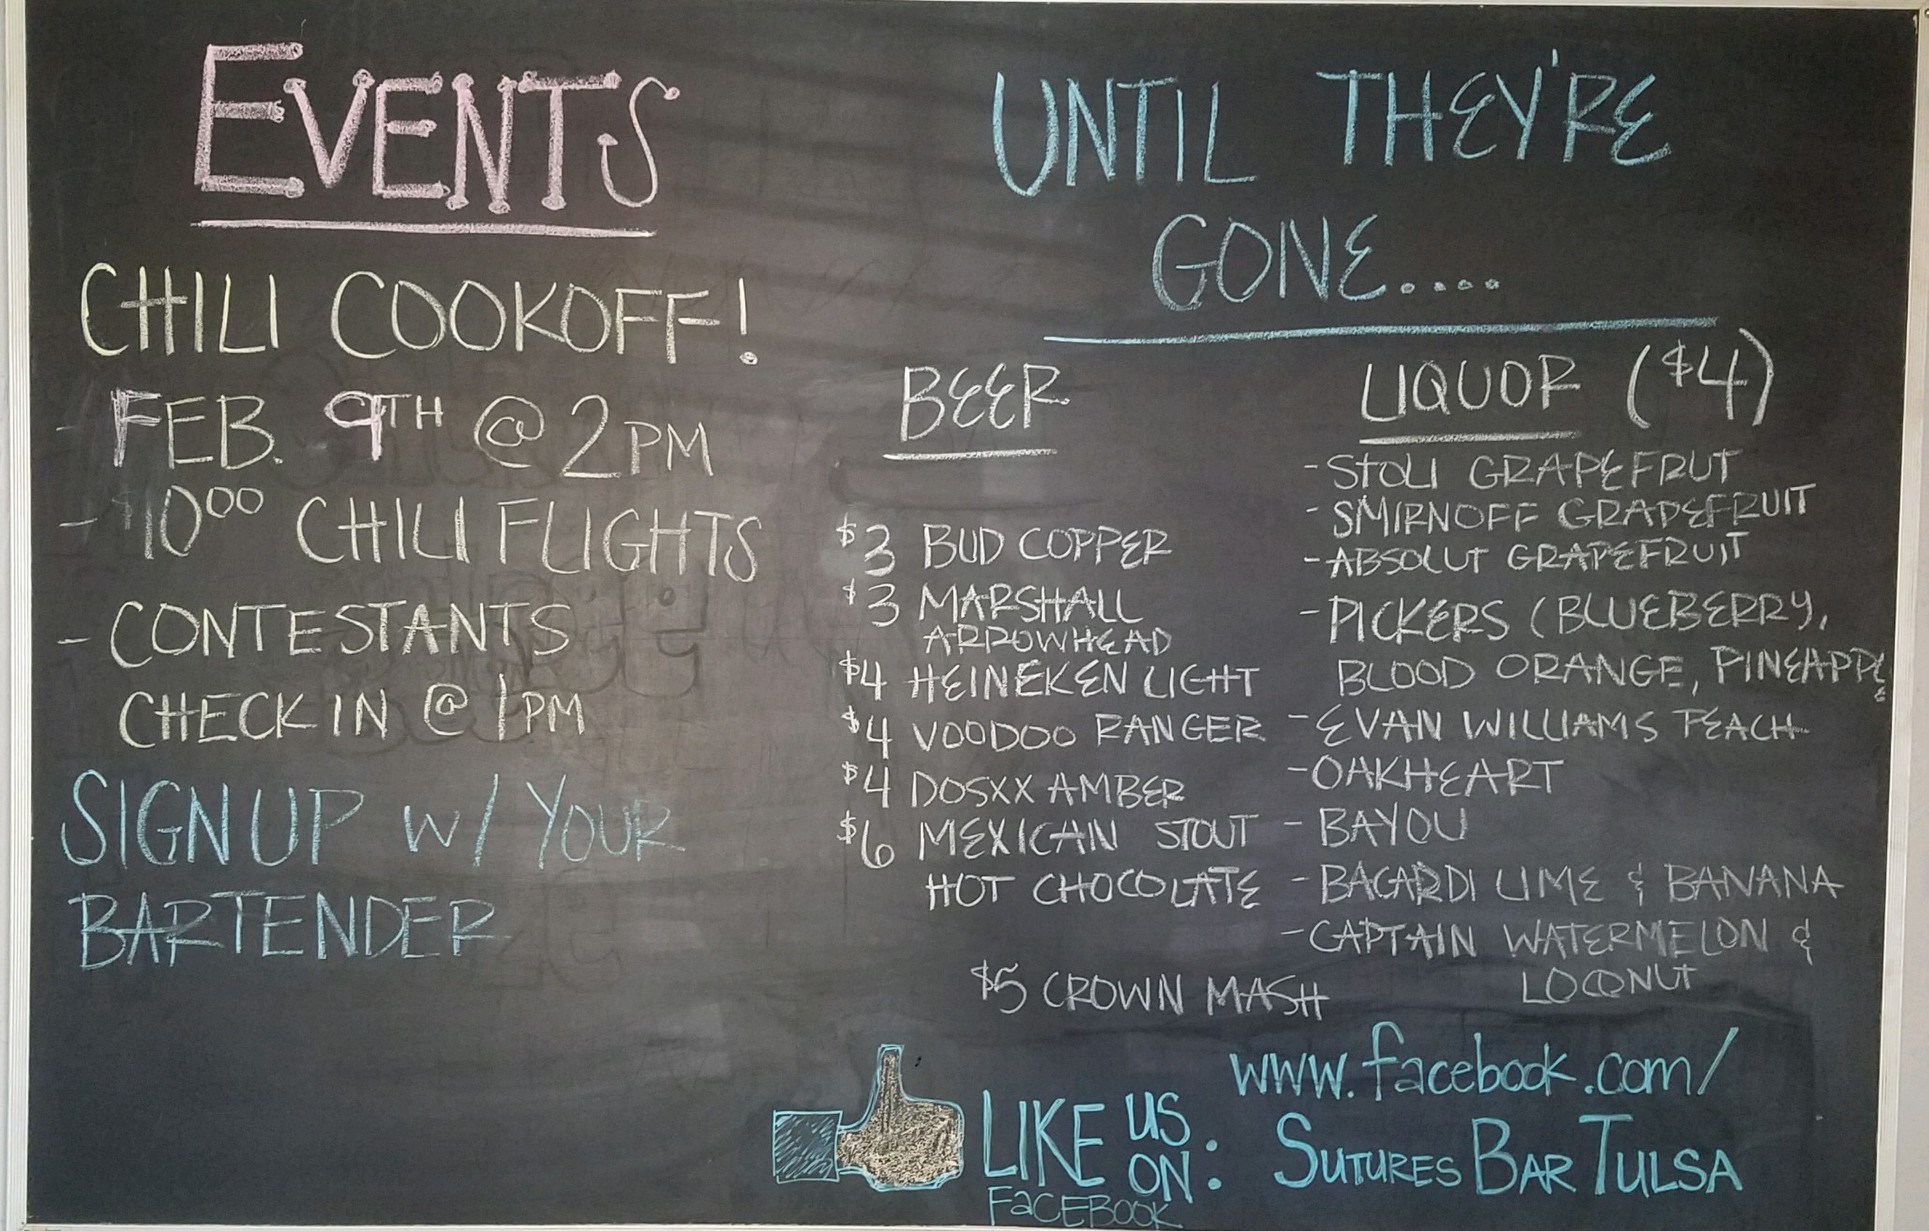 EVENTS
CHILI COOKOFF!
- FEB. 9TH @ 2PM
- $1000 CHILI FLIGHTS
- CONTESTANTS
CHECK IN @ 1PM
SIGN UP W/ YOUR
BARTENDER
UNTIL THEY'RE
GONE....
BEER
$3 BUD COPPER
$3 MARSHALL
ARROWHEAD
$4 HEINEKEN LIGHT
$4 VOODOO RANGER
$4 DOSXX AMBER
$6 MEXICAN STOUT
HOT CHOCOLATE
$5 CROWN MASH
LIQUOR ($4)
- STOLI GRAPEFRUT
- SMIRNOFF GRAPEFRUIT
- ABSOLUT GRAPEFRUIT
- PICKERS (BLUEBERRY,
BLOOD ORANGE, PINEAPPLE
- EVAN WILLIAMS PEACH
- OAKHEART
- BAYOU
- BACARDI LIME & BANANA
- CAPTAIN WATERMELON &
LOCONUT
LIKE US
ON:
FACEBOOK
www.facebook.com/
SUTURES BAR TULSA